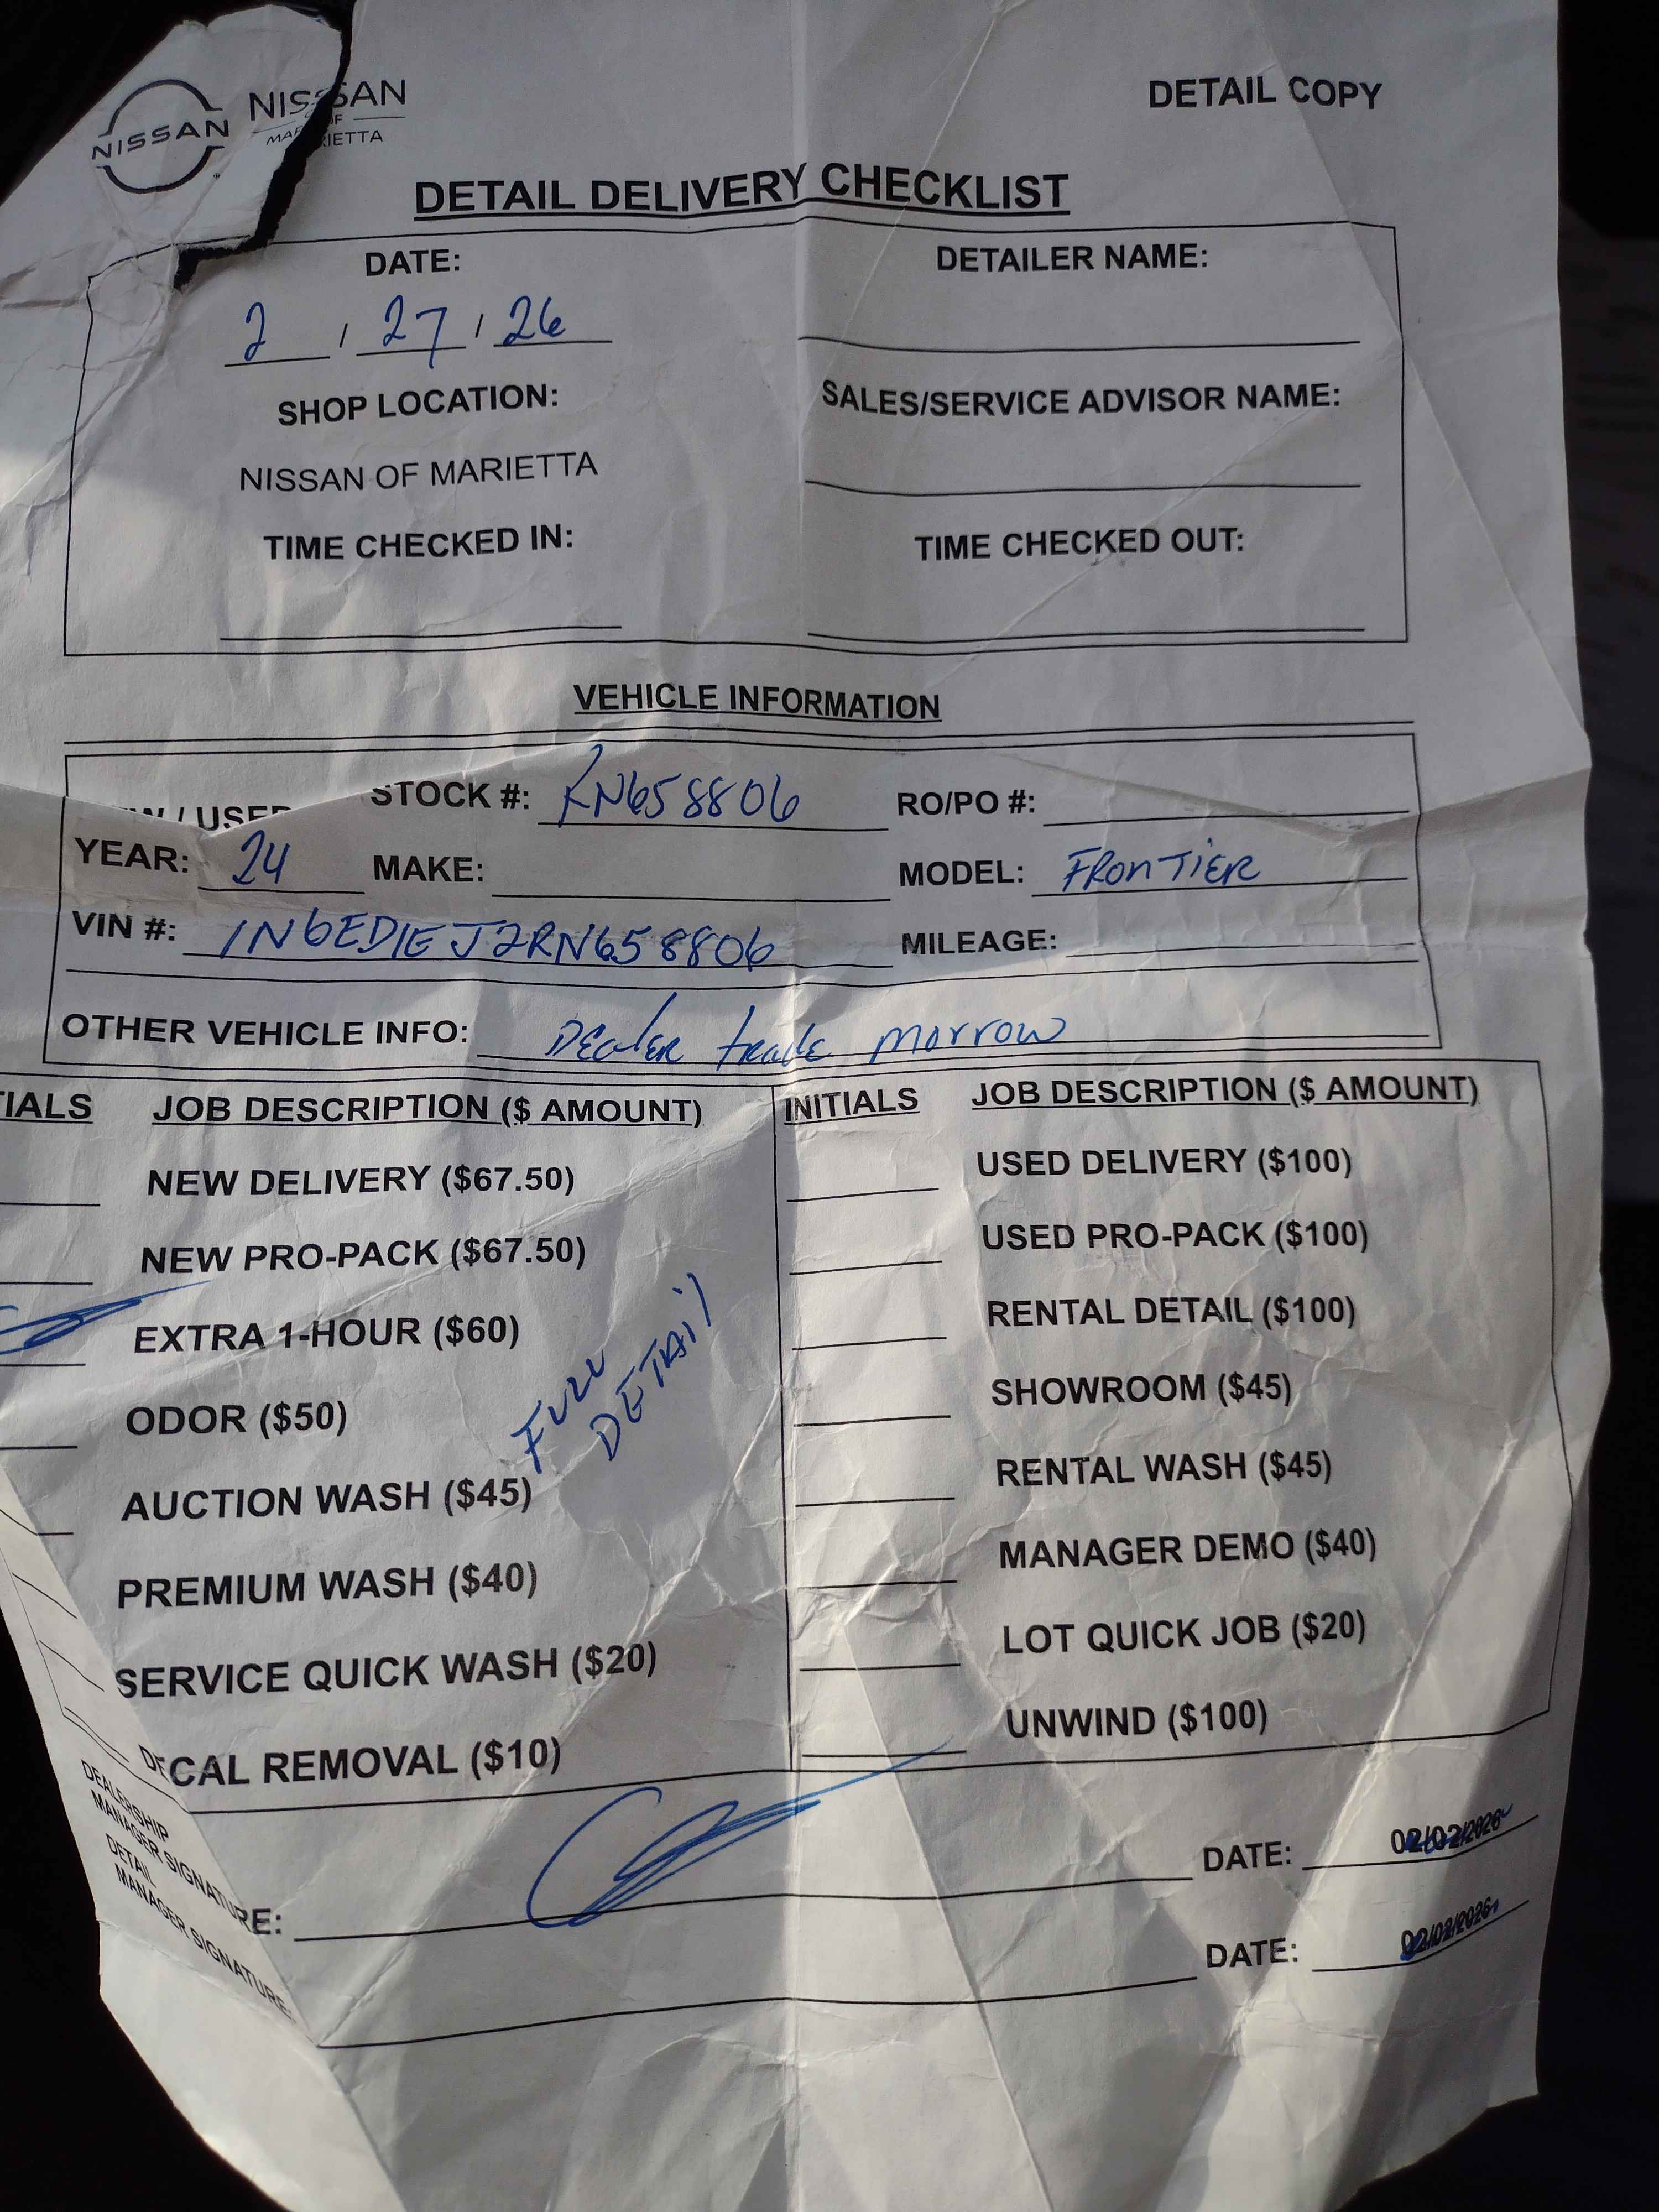 NISSAN
NISSAN
OF
MARIETTA
DETAIL COPY
DETAIL DELIVERY CHECKLIST
DATE:
2 / 27 / 26
DETAILER NAME:
SHOP LOCATION:
NISSAN OF MARIETTA
SALES/SERVICE ADVISOR NAME:
TIME CHECKED IN:
TIME CHECKED OUT:
VEHICLE INFORMATION
W / USED STOCK #: RN658806 RO/PO #:
YEAR: 24 MAKE: MODEL: FRONTIER
VIN #: 1N6ED1EJ2RN658806 MILEAGE:
OTHER VEHICLE INFO: DEALER trade morrow
TIALS JOB DESCRIPTION ($ AMOUNT)
NEW DELIVERY ($67.50)
NEW PRO-PACK ($67.50)
EXTRA 1-HOUR ($60)
ODOR ($50)
FULL
DETAIL
AUCTION WASH ($45)
PREMIUM WASH ($40)
SERVICE QUICK WASH ($20)
DECAL REMOVAL ($10)
INITIALS JOB DESCRIPTION ($ AMOUNT)
USED DELIVERY ($100)
USED PRO-PACK ($100)
RENTAL DETAIL ($100)
SHOWROOM ($45)
RENTAL WASH ($45)
MANAGER DEMO ($40)
LOT QUICK JOB ($20)
UNWIND ($100)
DEALERSHIP
MANAGER SIGNATURE: DATE: 02/02/2026
DETAIL
MANAGER SIGNATURE: DATE: 02/02/2026